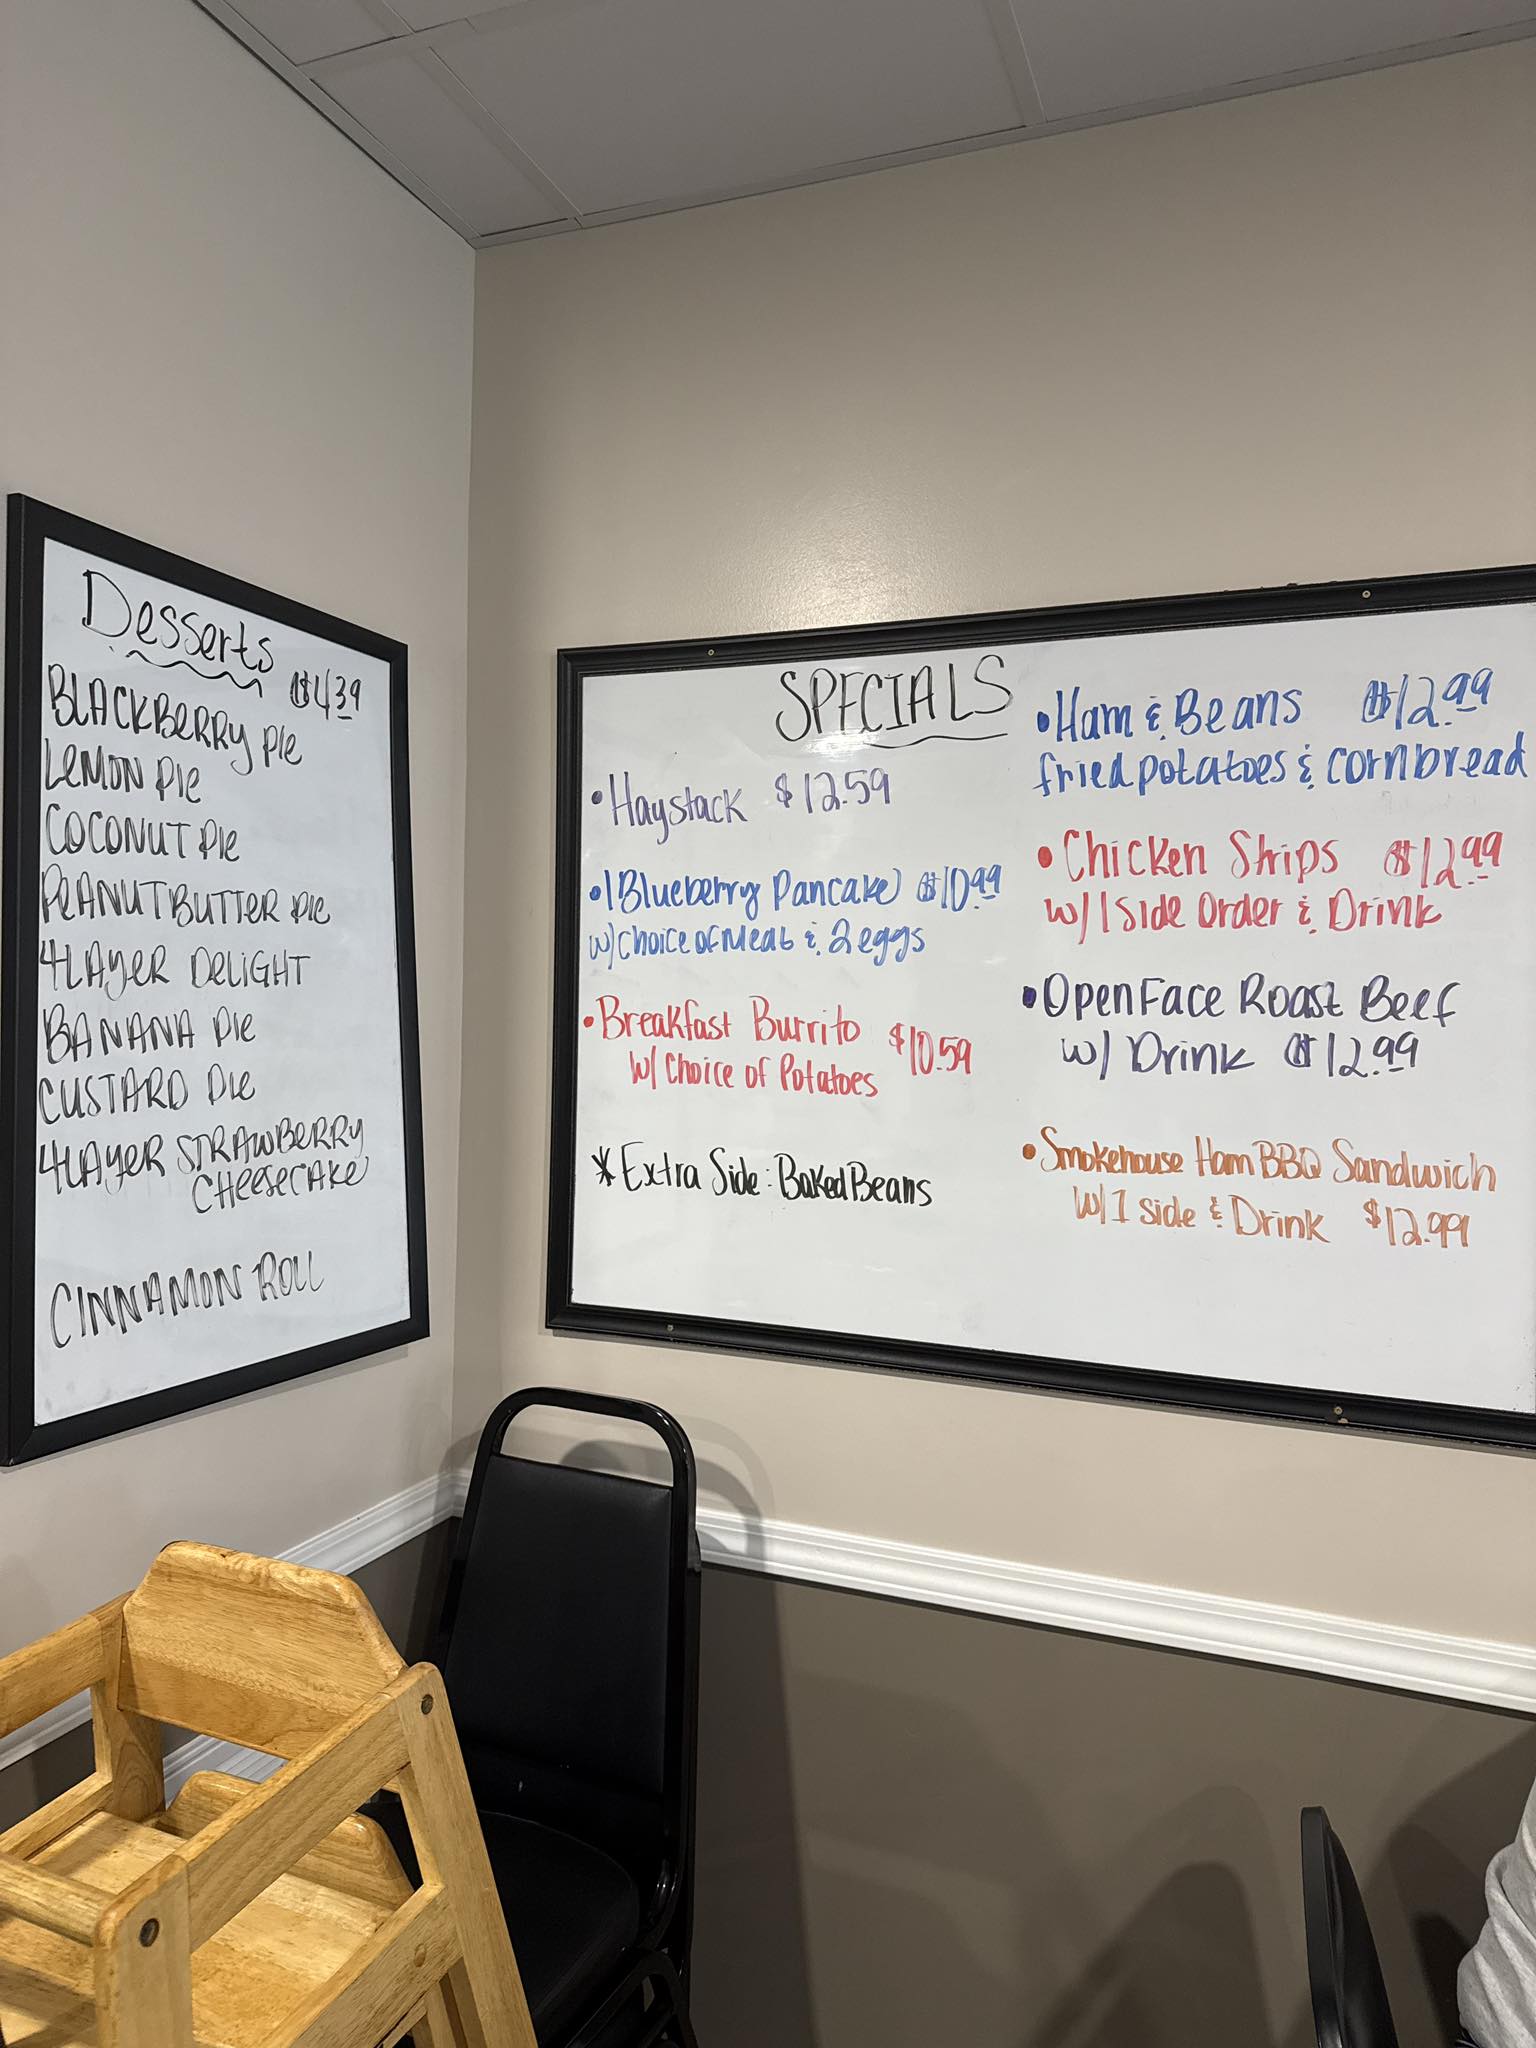 Desserts
$4.39
BLACKBERRY PIE
LEMON PIE
COCONUT PIE
PEANUT BUTTER PIE
4 LAYER DELIGHT
BANANA PIE
CUSTARD PIE
4 LAYER STRAWBERRY
CHEESECAKE
CINNAMON ROLL
SPECIALS
• Haystack $12.59
• 1 Blueberry Pancake $10.99
w/ choice of Meat & 2 eggs
• Breakfast Burrito $10.59
w/ Choice of Potatoes
* Extra Side: Baked Beans
• Ham & Beans $12.99
fried potatoes & cornbread
• Chicken Strips $12.99
w/ 1 side order & Drink
• Open Face Roast Beef
w/ Drink $12.99
• Smokehouse Ham BBQ Sandwich
w/ 1 side & Drink $12.99